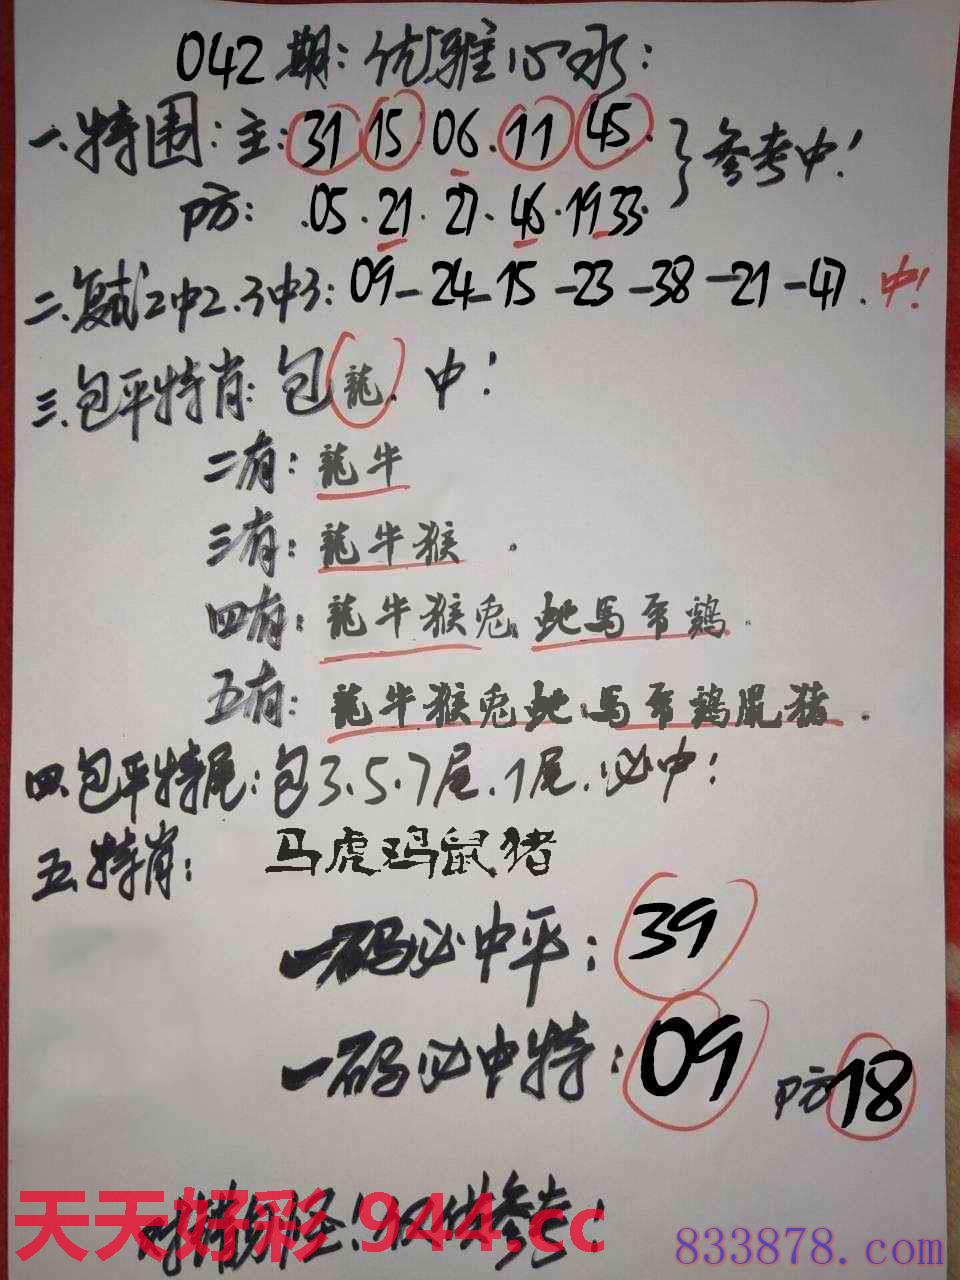 042期:优雅心水:
一.特围:主:31 15 06.11 45. }参考中!
防: .05.21.27.46.19 33.
二.复式2中2.3中3:09-24-15-23-38-21-47.中!
三.包平特肖:包龍.中!
二有:龍牛
三有:龍牛猴.
四有:龍牛猴兎蛇馬帝鷄.
五有:龍牛猴兎蛇馬帝鷄鼠猪.
四.包平特尾:包3.5.7尾.1尾.必中!
五.特肖:马虎鸡鼠猪
一码必中平:39
一码必中特:09 防18
仅供参考!
天天好彩.944.cc
833878.com